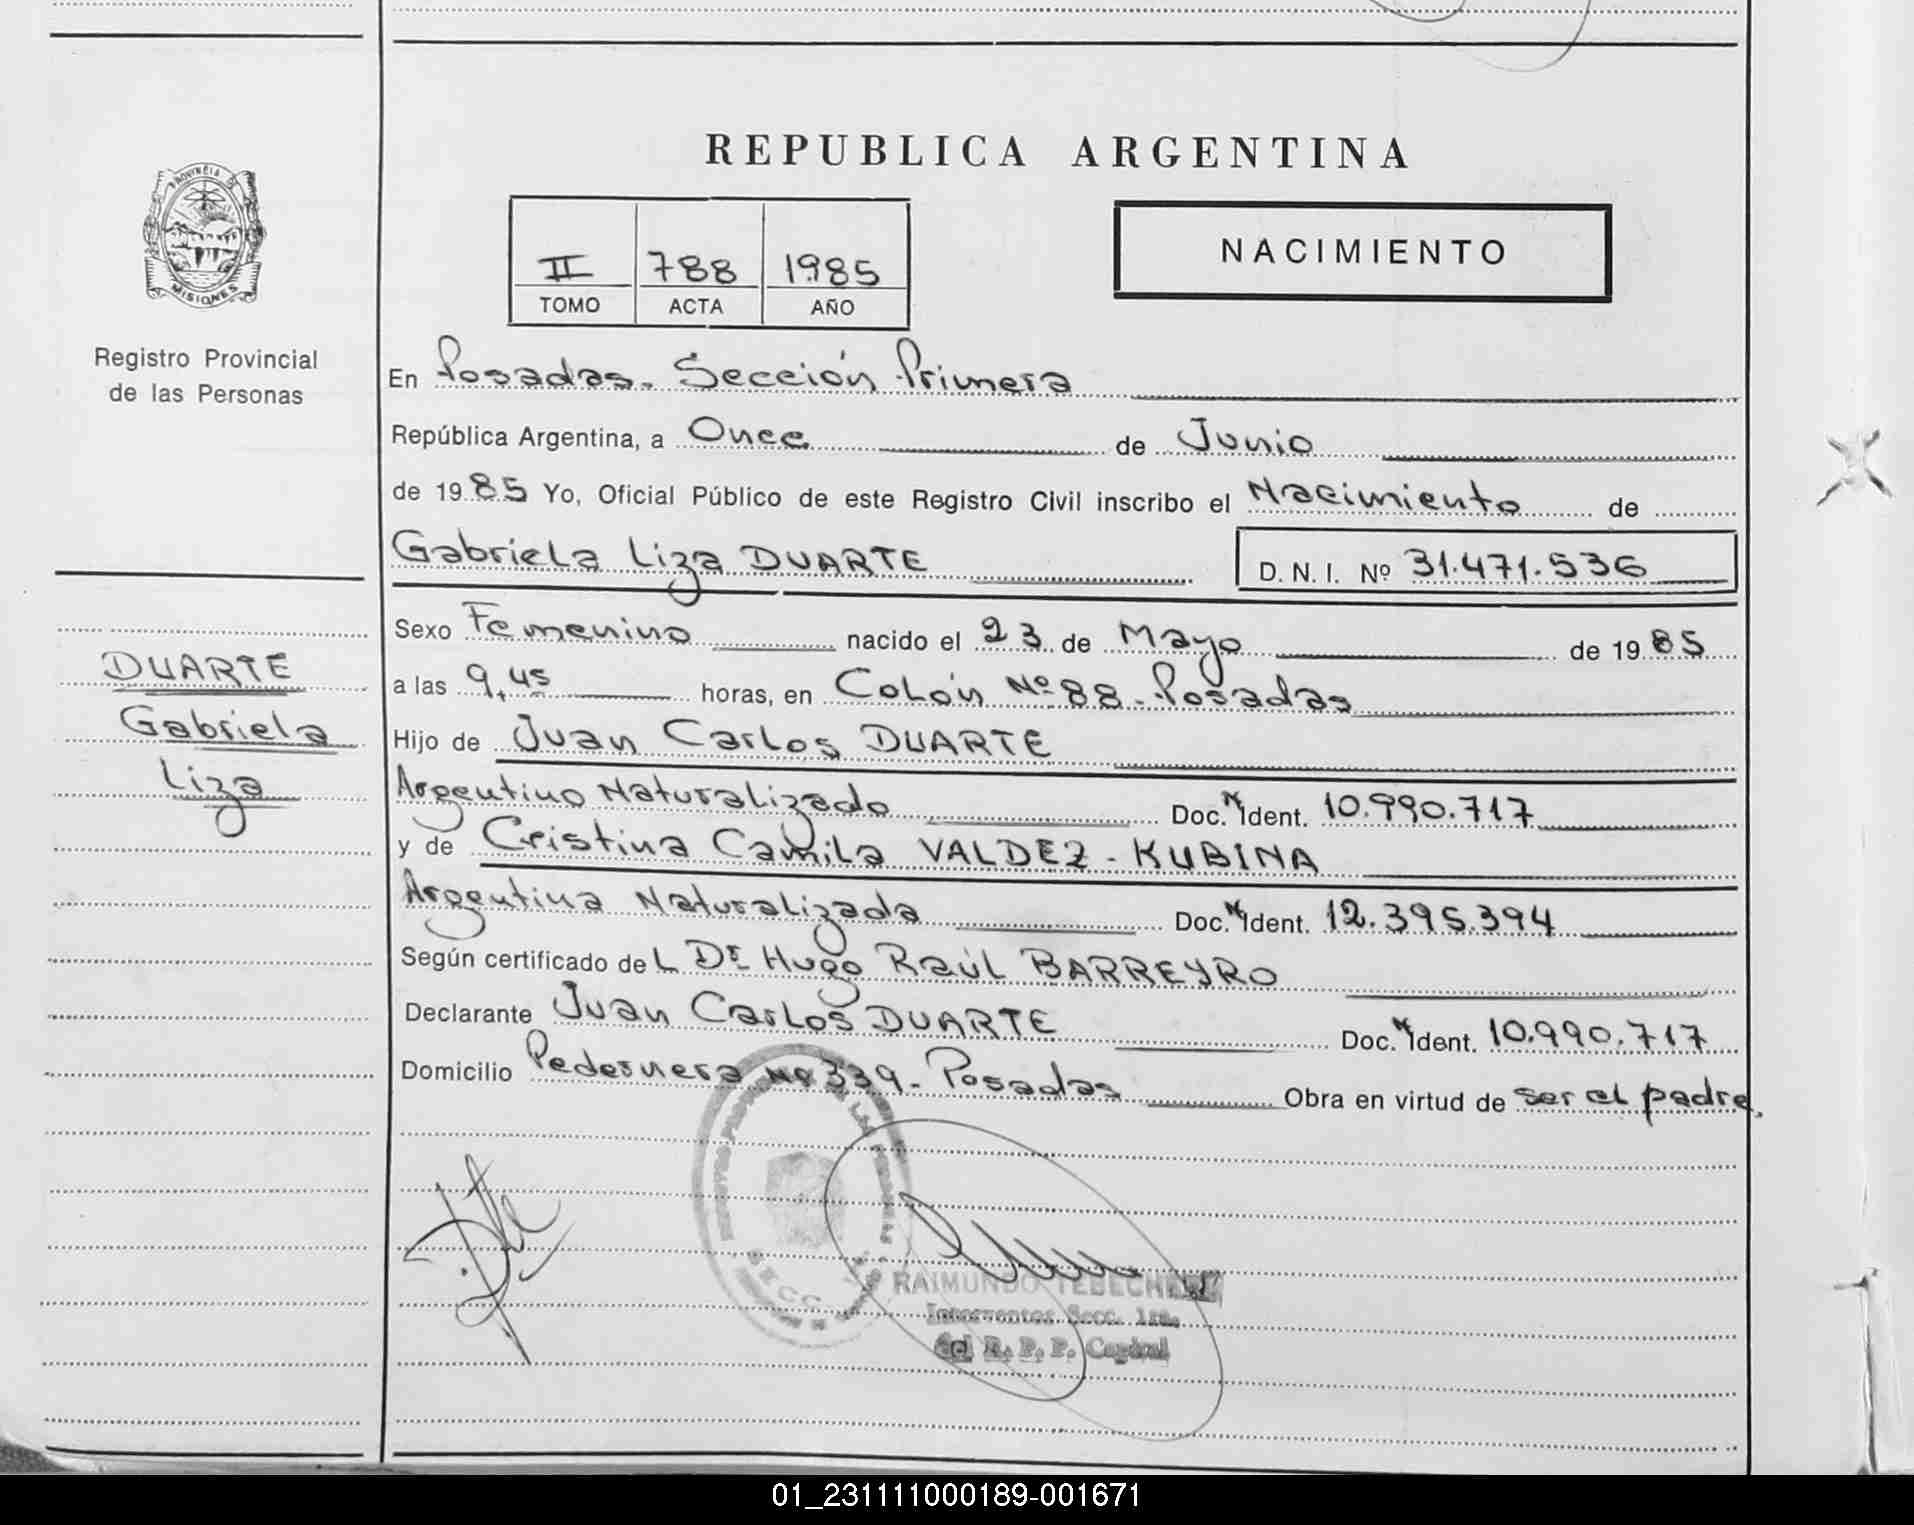 REPUBLICA ARGENTINA
PROVINCIA DE
MISIONES
Registro Provincial
de las Personas
II 788 1985
TOMO ACTA AÑO
NACIMIENTO
En Posadas - Sección Primera
República Argentina, a Once de Junio
de 1985 Yo, Oficial Público de este Registro Civil inscribo el Nacimiento de
Gabriela Liza DUARTE D. N. I. Nº 31.471.536
Sexo Femenino nacido el 23 de Mayo de 1985
a las 9,45 horas, en Colón Nº 88 - Posadas
Hijo de Juan Carlos DUARTE
Argentino Naturalizado Doc. N. Ident. 10.990.717
y de Cristina Camila VALDEZ - KUBINA
Argentina Naturalizada Doc. N. Ident. 12.395.394
Según certificado del Dr Hugo Raúl BARREYRO
Declarante Juan Carlos DUARTE Doc. N. Ident. 10.990.717
Domicilio Pedernera Nº 339 - Posadas Obra en virtud de ser el padre.
DUARTE
Gabriela
Liza
SECC.
RAIMUNDO
Interventor Secc. 1ra.
del R. P. P. Capital
01_231111000189-001671